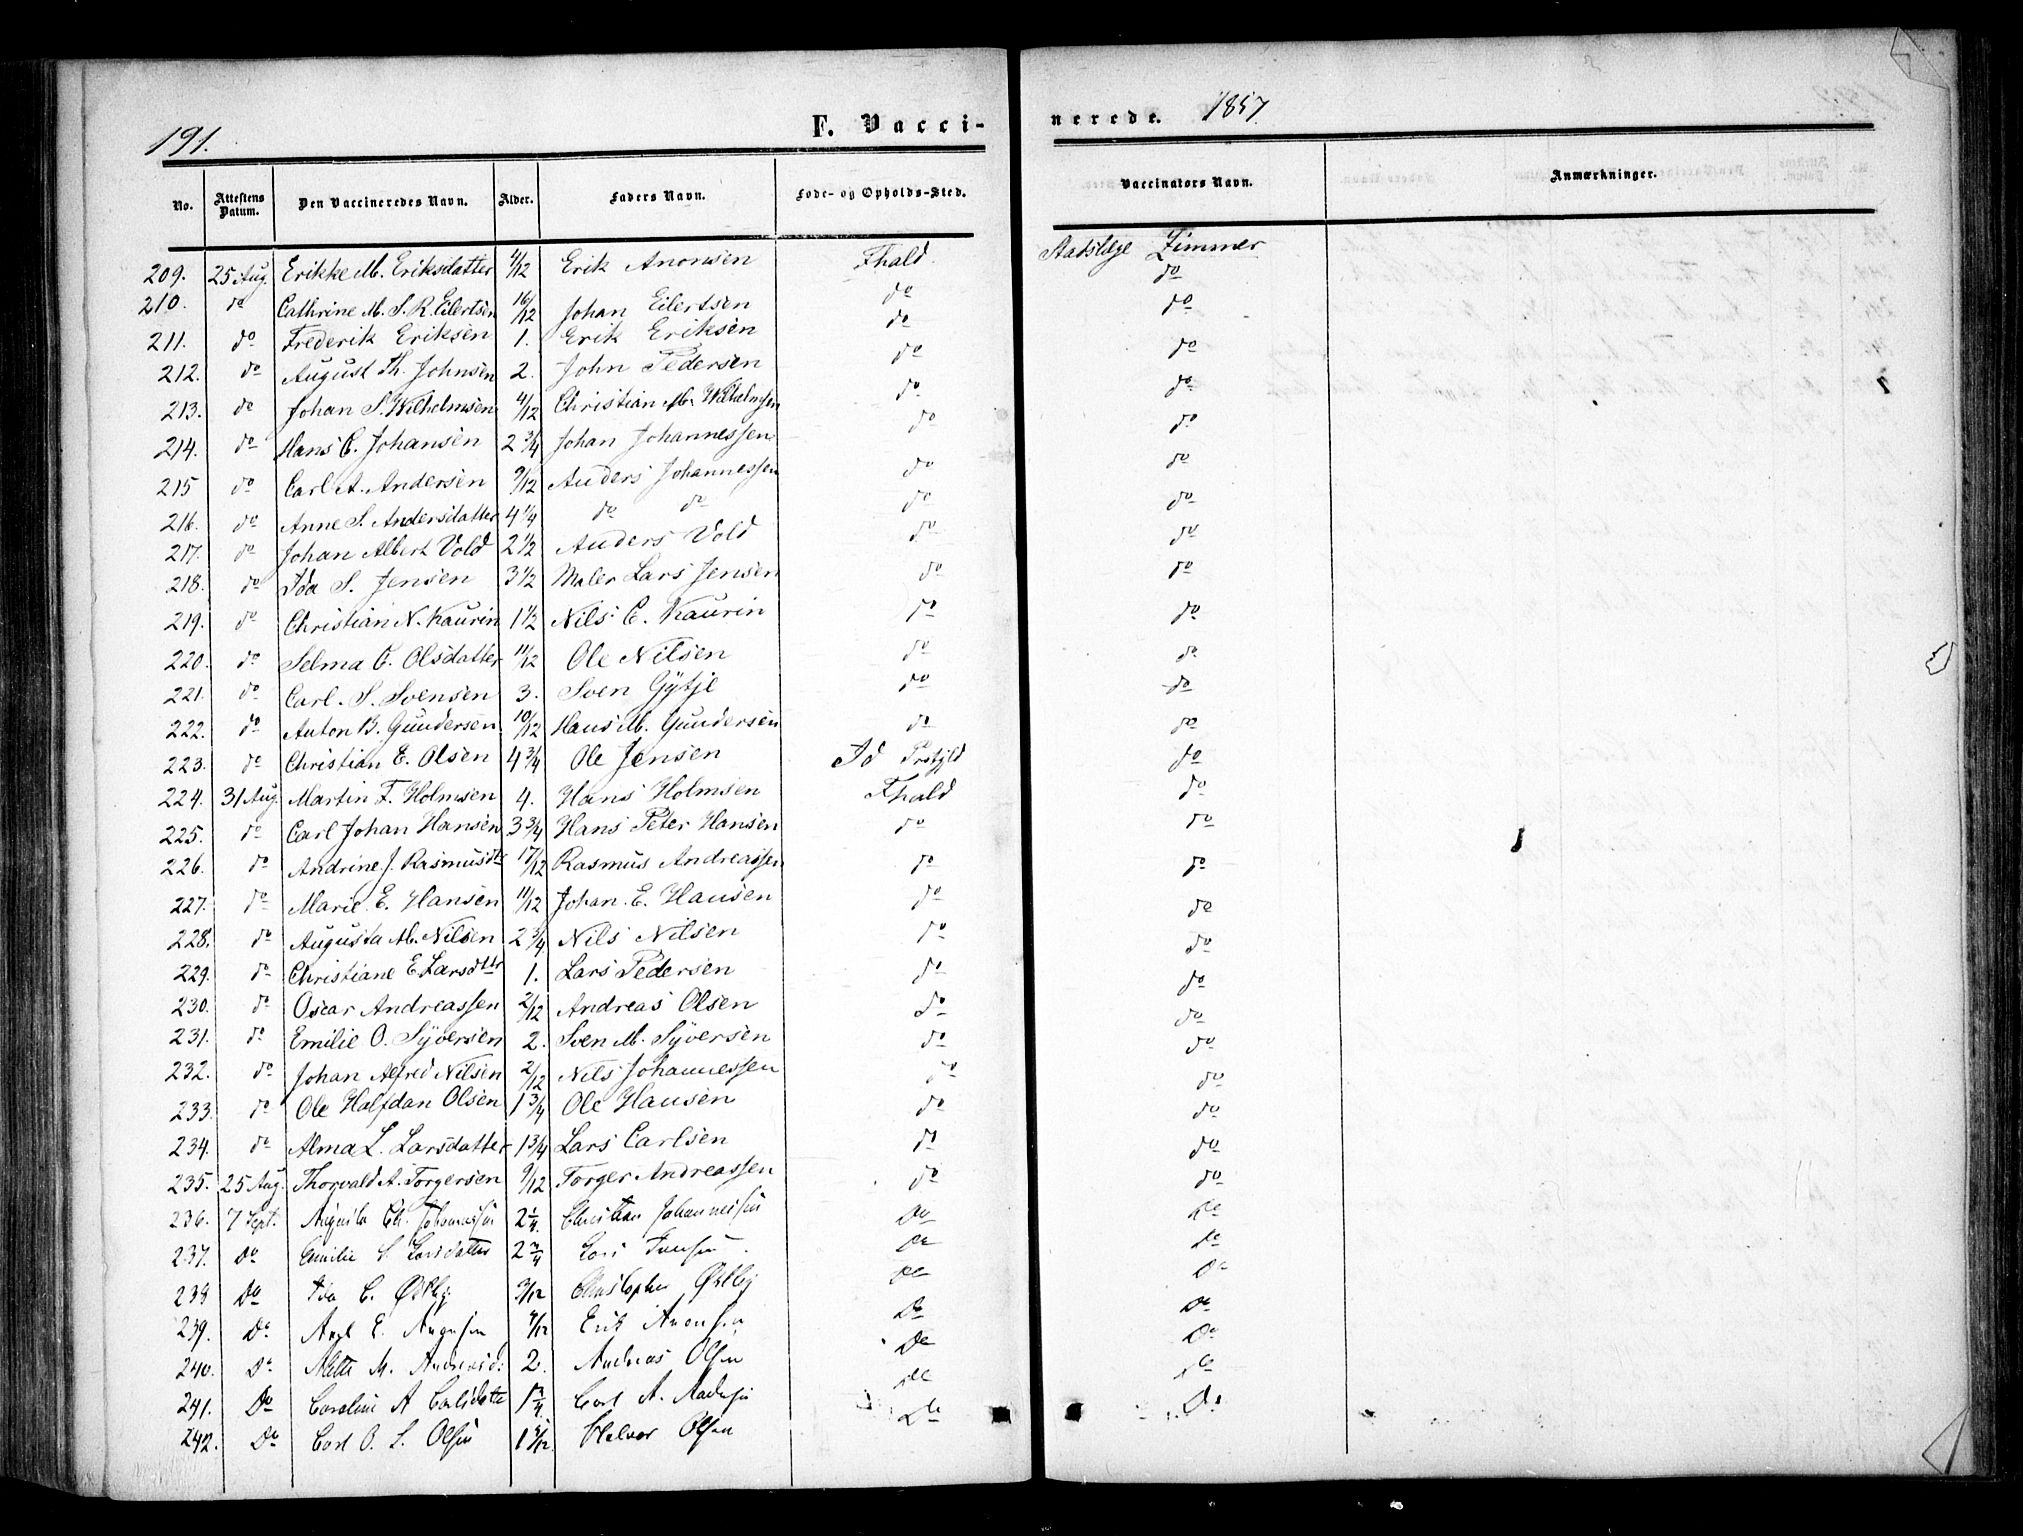 191.
F. Vacci-
nerede. 1857.
No. Attestens Datum. Den Vaccineredes Navn. Alder. Faders Navn. Føde- og Opholds-Sted. Vaccinators Navn. Anmærkninger.
209. 25 Aug. Erikke M. Eriksdatter 4/12 Erik Anonsen Fhald Stadslæge Zimmer
210. do Cathrine M. S. R. Eilertsen 16/12 Johan Eilertsen do do
211. do Frederik Eriksen 1. Erik Eriksen do do
212. do August Th. Johnsen 2. John Pedersen do do
213. do Johan S. Wilhelmsen 4/12 Christian M. Wilhelmsen do do
214. do Hans C. Johansen 2 3/4 Johan Johannessen do do
215 do Carl A. Andersen 9/12 Anders Johannessen do do
216. do Anne S. Andersdatter 4 1/4 do do do do
217. do Johan Albert Vold 2 1/2 Anders Vold do do
218. do Ida S. Jensen 3 1/2 Maler Lars Jensen do do
219. do Christian N. Kaurin 1 1/2 Nils C. Kaurin do do
220. do Selma C. Olsdatter 11/12 Ole Nilsen do do
221. do Carl. S. Svensen 3. Sven Gytje do do
222. do Anton B. Gundersen 10/12 Hans M. Gundersen do do
223. do Christian E. Olsen 4 3/4 Ole Jensen Id Prstgjld do
224. 31 Aug. Martin F. Holmsen 4. Hans Holmsen Fhald do
225. do Carl Johan Hansen 3 3/4 Hans Peter Hansen do do
226. do Andrine J. Rasmusdtr 17/12 Rasmus Andreassen do do
227. do Marie E. Hansen 11/12 Johan E. Hansen do do
228. do Augusta M. Nilsen 2 3/4 Nils Nilsen do do
229. do Christiane E Larsdttr 1. Lars Pedersen do do
230. do Oscar Andreassen 2/12 Andreas Olsen do do
231. do Emilie O. Syversen 2. Sven M. Syversen do do
232. do Johan Alfred Nilsen 2/12 Nils Johannessen do do
233. do Ole Halfdan Olsen 1 3/4 Ole Hansen do do
234. do Alma L. Larsdatter 1 3/4 Lars Carlsen do do
235. 25 Aug. Thorvald A. Torgersen 9/12 Torger Andreassen do do
236. 7 Sept. Ch. Johannessen 2 1/4. Christian Johannessen Do Do
237. Do Emilie S. Larsdatter 2 3/4 Lars Jensen Do Do
238 Do Ida C. Østby 3/12 Christopher Østby Do Do
239. Do Axel E. 4/12 Erik Anonsen Do Do
240. Do Mette M. Andreasd: 2. Andreas Olsen Do Do
241. Do Caroline A Carlsdatter 1 3/4. Carl A. Do Do
242. Do Carl O. L. Olsen 1 Halvor Olsen Do Do